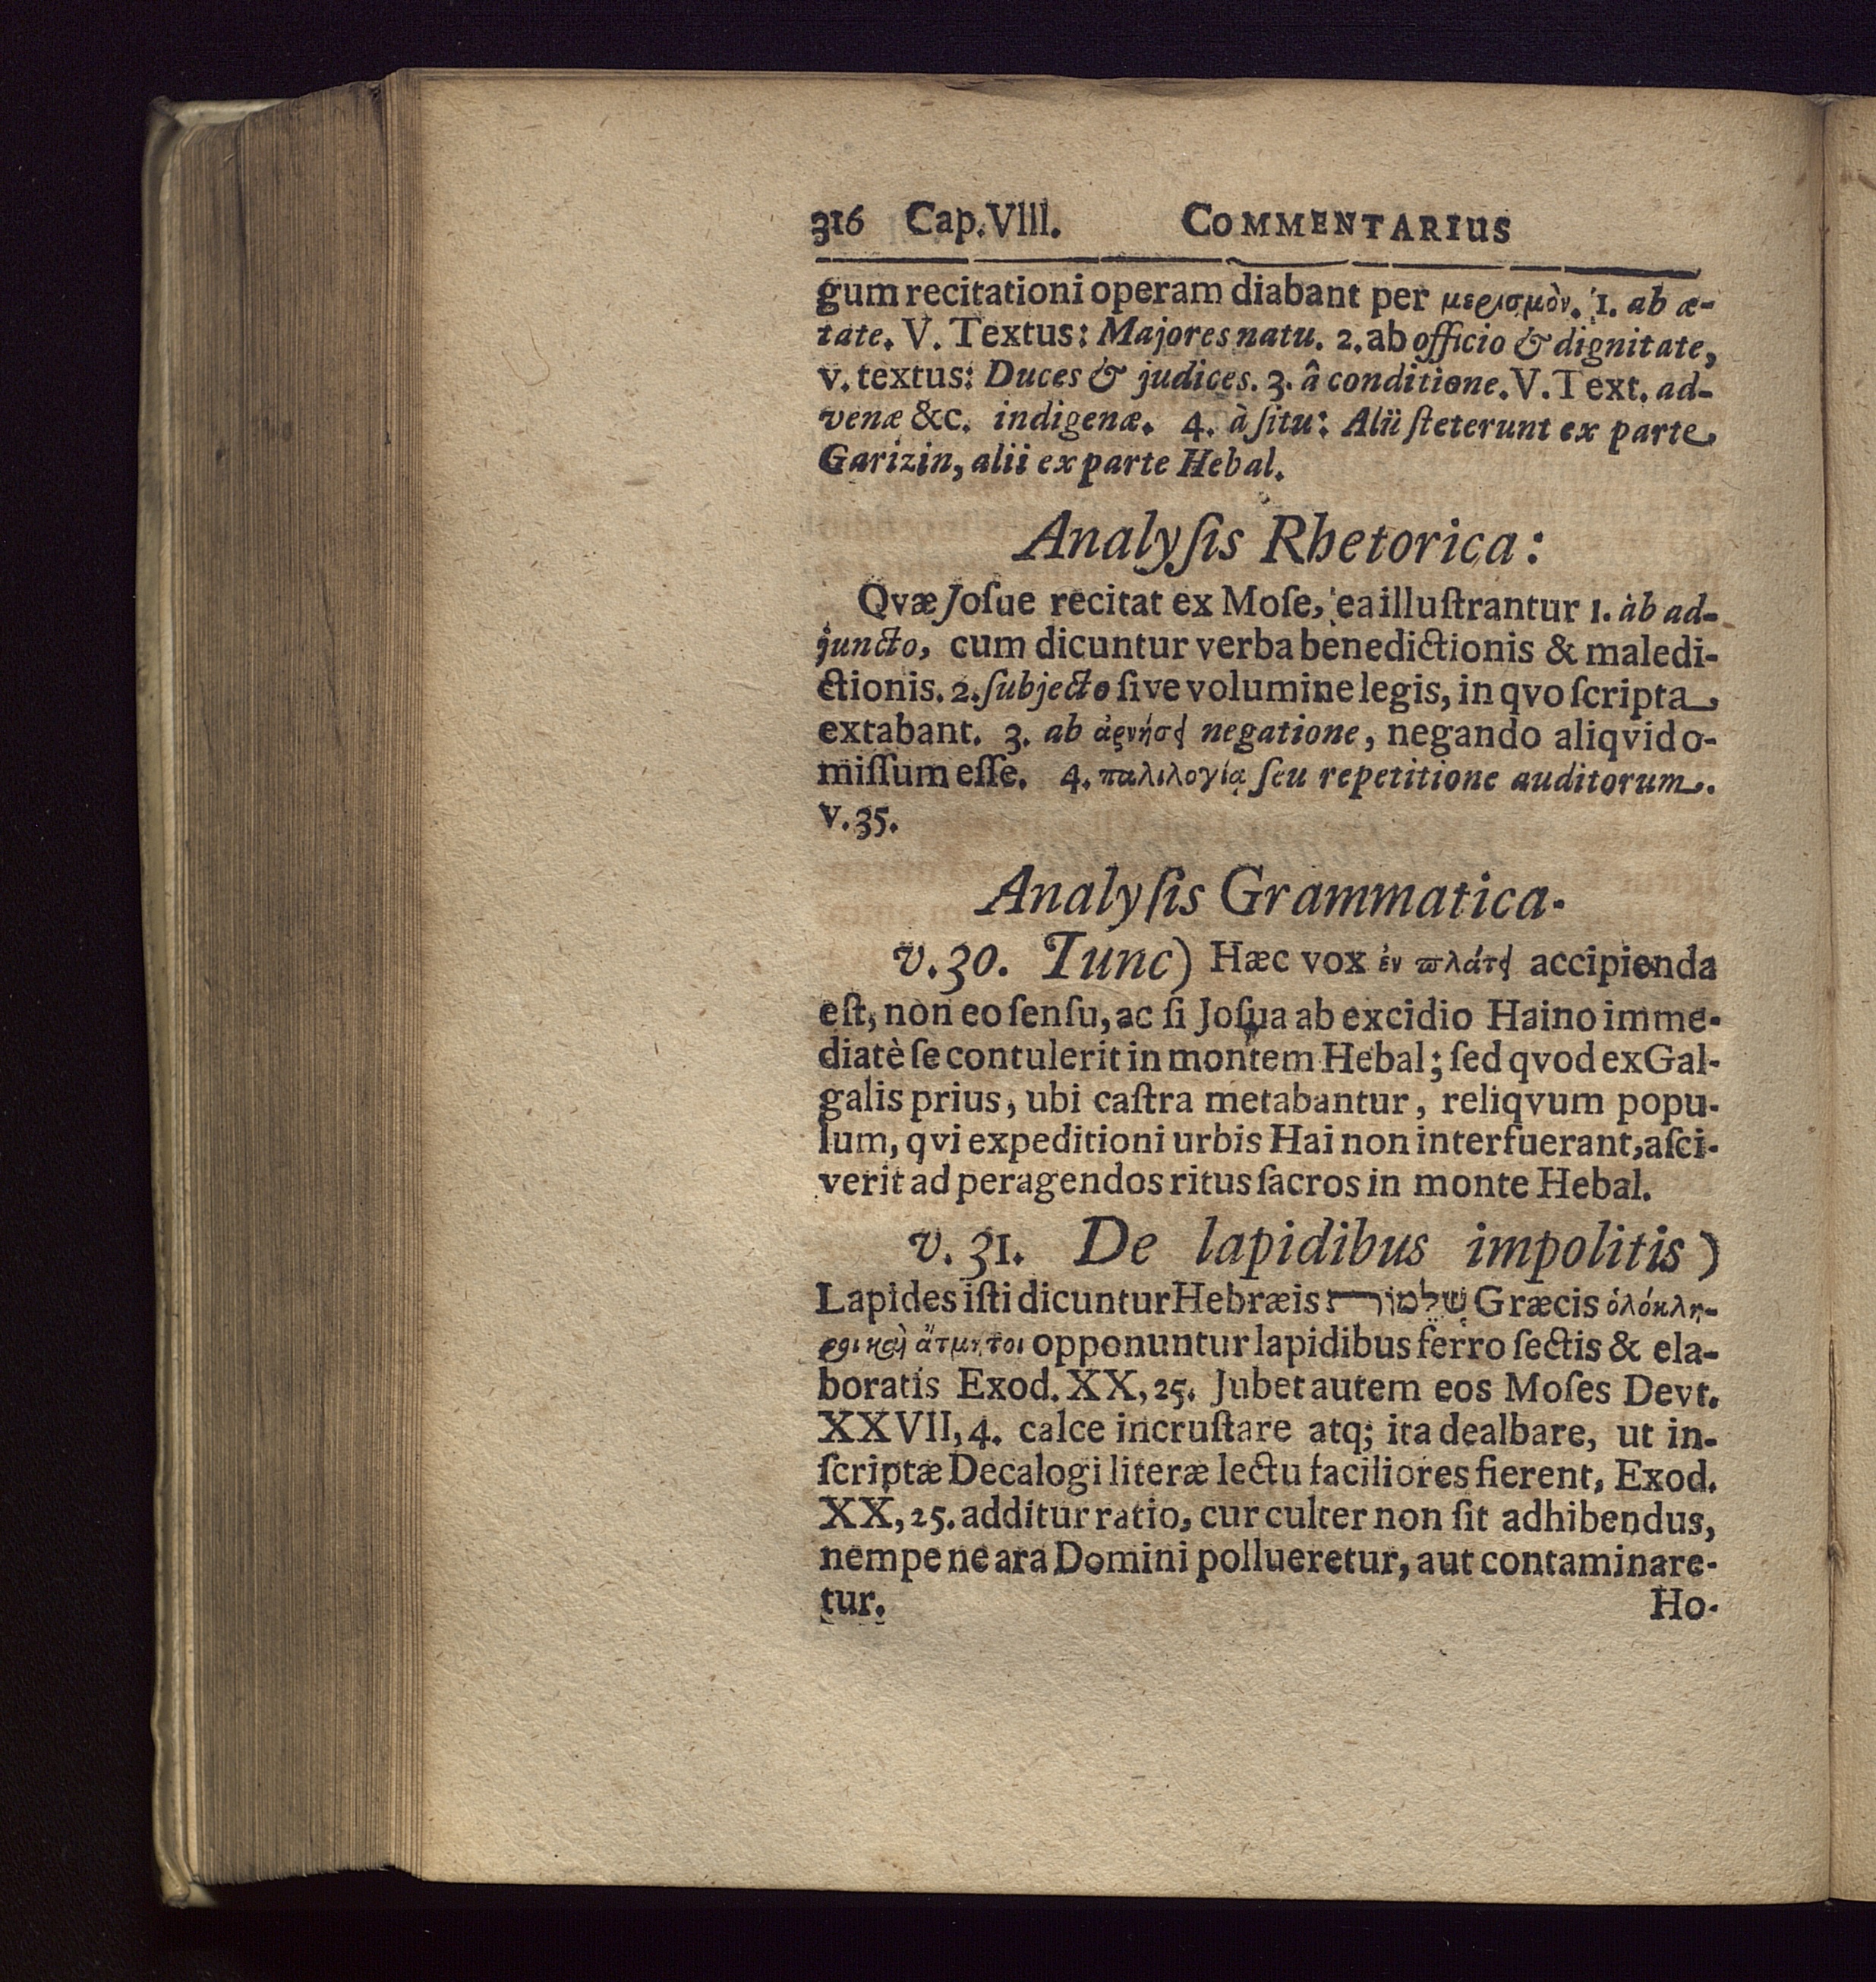 316 Cap. VIII. COMMENTARIUS
gum recitationi operam diabant per μερισμὸν. 1. ab æ-
tate. V. Textus: Majores natu. 2. ab officio & dignitate,
v. textus: Duces & judices. 3. â conditione. V. Text. ad-
venæ &c. indigenæ. 4. à ſitu: Alii ſteterunt ex parte
Garizin, alii ex parte Hebal.
Analyſis Rhetorica:
Qvæ Joſue recitat ex Moſe, ea illuſtrantur 1. àb ad-
juncto, cum dicuntur verba benedictionis & maledi-
ctionis. 2. ſubjecto ſive volumine legis, in qvo ſcripta
extabant. 3. ab ἀρνήσει negatione, negando aliqvid o-
miſſum eſſe. 4. παλιλογία ſeu repetitione auditorum.
v. 35.
Analyſis Grammatica.
v. 30. Tunc) Hæc vox ἐν πλάτει accipienda
eſt, non eo ſenſu, ac ſi Joſua ab excidio Haino imme-
diatè ſe contulerit in montem Hebal; ſed qvod ex Gal-
galis prius, ubi caſtra metabantur, reliqvum popu-
lum, qvi expeditioni urbis Hai non interfuerant, aſci-
verit ad peragendos ritus ſacros in monte Hebal.
v. 31. De lapidibus impolitis)
Lapides iſti dicuntur Hebræis Græcis ὁλόκλη-
ροι καὶ ἄτμητοι opponuntur lapidibus ferro ſectis & ela-
boratis Exod. XX, 25. Jubet autem eos Moſes Devt.
XXVII, 4. calce incruſtare atq; ita dealbare, ut in-
ſcriptæ Decalogi literæ lectu faciliores fierent, Exod.
XX, 25. additur ratio, cur culter non ſit adhibendus,
nempe ne ara Domini pollueretur, aut contaminare-
tur. Ho-